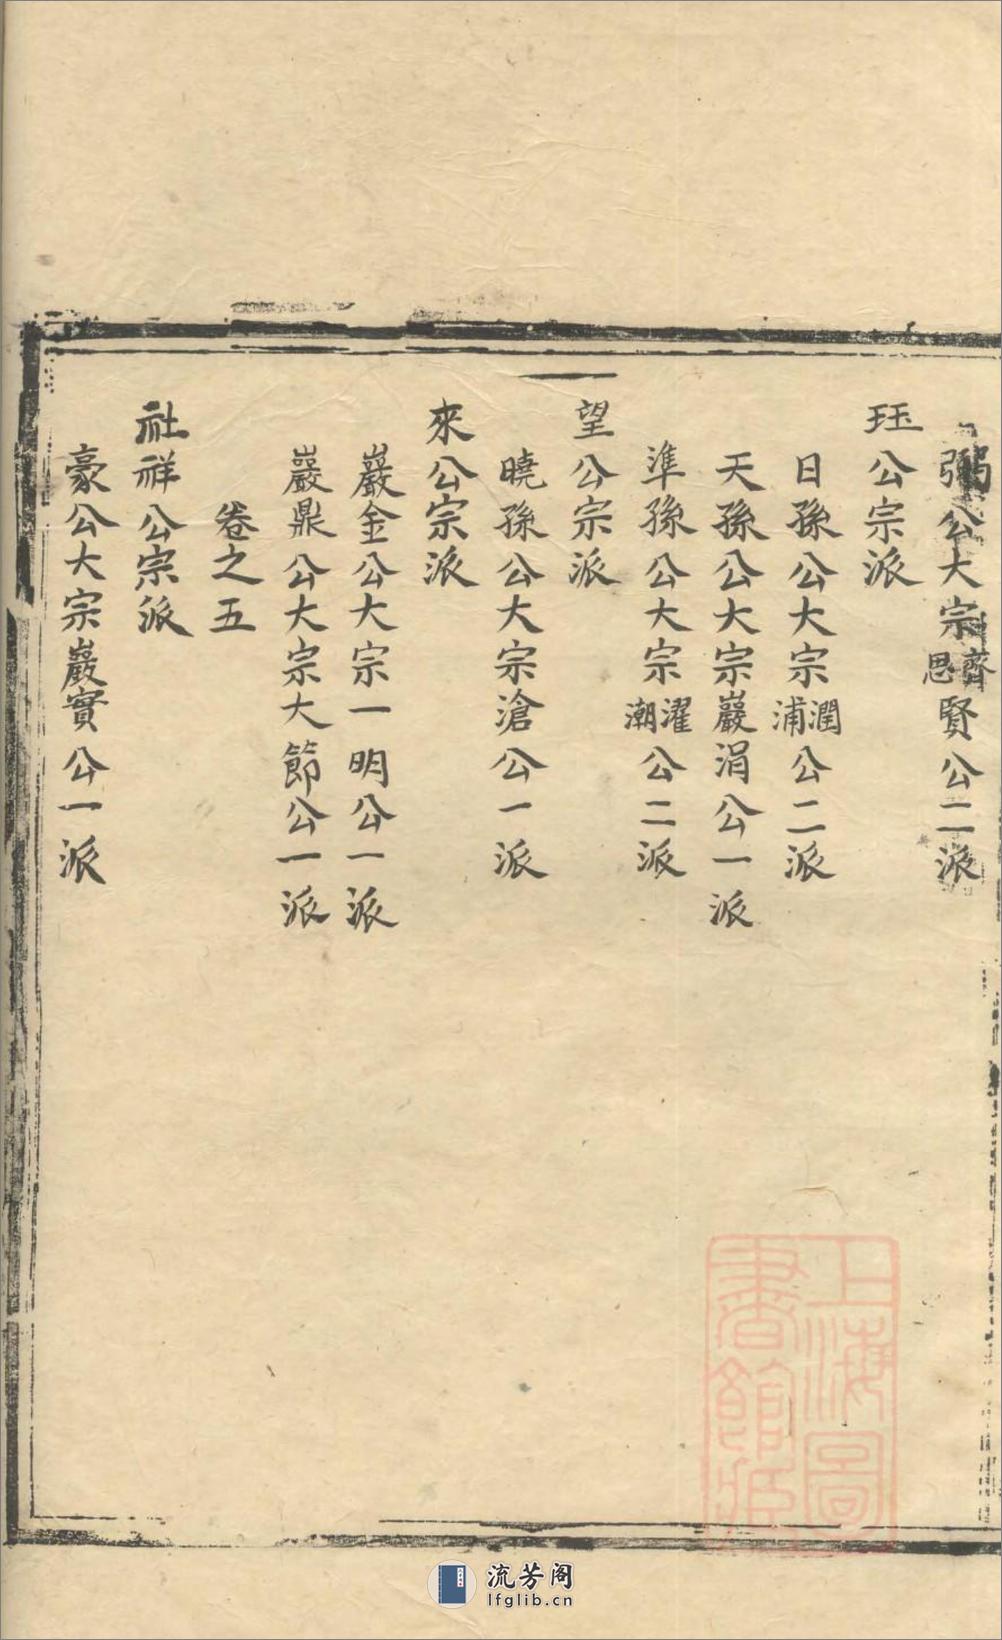 弼公大宗齊思賢公二派
珏公宗派
日孫公大宗潤浦公二派
天孫公大宗巖涓公一派
準孫公大宗濯潮公二派
望公宗派
曉孫公大宗滄公一派
來公宗派
巖金公大宗一明公一派
巖鼎公大宗大節公一派
卷之五
社祥公宗派
豪公大宗巖實公一派
上海圖書館藏
流芳阁
lfglib.cn